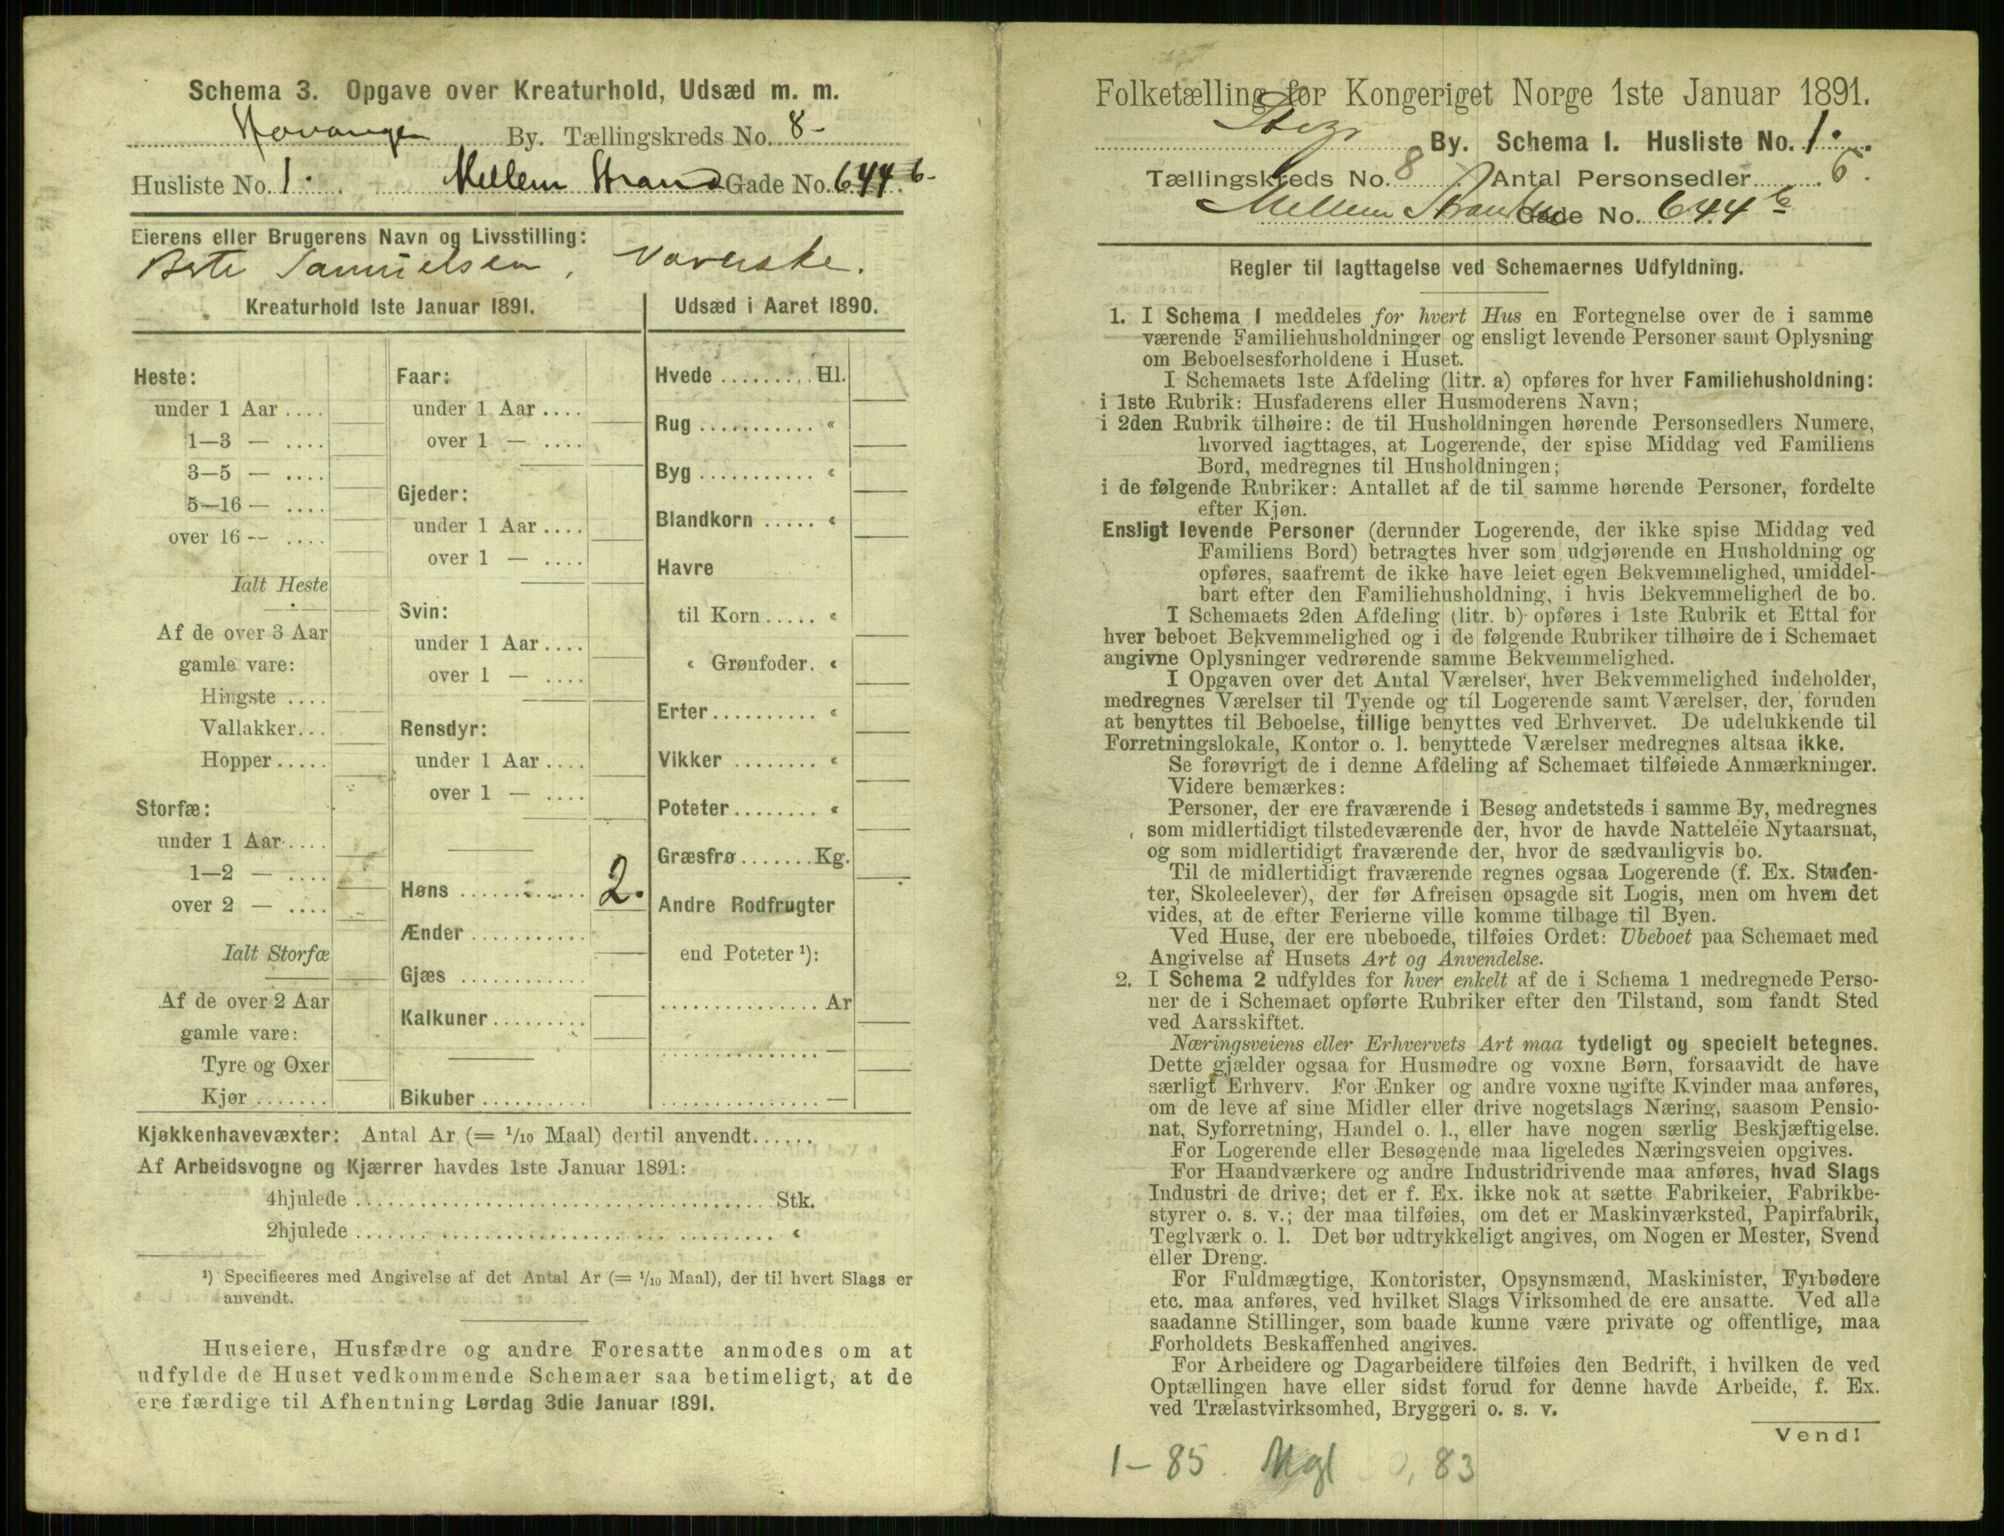 Schema 3. Opgave over Kreaturhold, Udsæd m. m.
Stavanger By. Tællingskreds No. 8-
Husliste No. 1. Mellem Strand Gade No. 644.b-
Eierens eller Brugerens Navn og Livsstilling:
Berte Samuelsen, Væverske.
Kreaturhold 1ste Januar 1891.
Heste:
under 1 Aar ....
1—3 — ....
3—5 — ....
5—16 — ....
over 16 — ....
Ialt Heste
Af de over 3 Aar
gamle vare:
Hingste ....
Vallakker...
Hopper .....
Storfæ:
under 1 Aar ....
1—2 — ....
over 2 — ....
Ialt Storfæ
Af de over 2 Aar
gamle vare:
Tyre og Oxer
Kjør .......
Faar:
under 1 Aar ....
over 1 — ....
Gjeder:
under 1 Aar ....
over 1 — ....
Svin:
under 1 Aar ....
over 1 — ....
Rensdyr:
under 1 Aar ....
over 1 — ....
Høns ........... 2.
Ænder ...........
Gjæs ............
Kalkuner .........
Bikuber ..........
Udsæd i Aaret 1890.
Hvede ......... Hl.
Rug ........... «
Byg ........... «
Blandkorn ..... «
Havre
til Korn ..... «
« Grønfoder. «
Erter .......... «
Vikker ......... «
Poteter ........ «
Græsfrø ....... Kg.
Andre Rodfrugter
end Poteter ¹):
............... Ar
............... —
............... —
Kjøkkenhavevæxter: Antal Ar (= 1/10 Maal) dertil anvendt......
Af Arbeidsvogne og Kjærrer havdes 1ste Januar 1891:
4hjulede ........................................ Stk.
2hjulede ........................................ «
¹) Specifieeres med Angivelse af det Antal Ar (= 1/10 Maal), der til hvert Slags er
anvendt.
Huseiere, Husfædre og andre Foresatte anmodes om at
udfylde de Huset vedkommende Schemaer saa betimeligt, at de
ere færdige til Afhentning Lørdag 3die Januar 1891.
Folketælling for Kongeriget Norge 1ste Januar 1891.
By. Schema 1. Husliste No. 1.
Tællingskreds No. 8 Antal Personsedler 6.
Mellem Strand Gade No. 644 b
Regler til Iagttagelse ved Schemaernes Udfyldning.
1. I Schema 1 meddeles for hvert Hus en Fortegnelse over de i samme
værende Familiehusholdninger og ensligt levende Personer samt Oplysning
om Beboelsesforholdene i Huset.
I Schemaets 1ste Afdeling (litr. a) opføres for hver Familiehusholdning:
i 1ste Rubrik: Husfaderens eller Husmoderens Navn;
i 2den Rubrik tilhøire: de til Husholdningen hørende Personsedlers Numere,
hvorved iagttages, at Logerende, der spise Middag ved Familiens
Bord, medregnes til Husholdningen;
i de følgende Rubriker: Antallet af de til samme hørende Personer, fordelte
efter Kjøn.
Ensligt levende Personer (derunder Logerende, der ikke spise Middag ved
Familiens Bord) betragtes hver som udgjørende en Husholdning og
opføres, saafremt de ikke have leiet egen Bekvemmelighed, umiddel-
bart efter den Familiehusholdning, i hvis Bekvemmelighed de bo.
I Schemaets 2den Afdeling (litr. b) opføres i 1ste Rubrik et Ettal for
hver beboet Bekvemmelighed og i de følgende Rubriker tilhøire de i Schemaet
angivne Oplysninger vedrørende samme Bekvemmelighed.
I Opgaven over det Antal Værelser, hver Bekvemmelighed indeholder,
medregnes Værelser til Tyende og til Logerende samt Værelser, der, foruden
at benyttes til Beboelse, tillige benyttes ved Erhvervet. De udelukkende til
Forretningslokale, Kontor o. l. benyttede Værelser medregnes altsaa ikke.
Se forøvrigt de i denne Afdeling af Schemaet tilføiede Anmærkninger.
Videre bemærkes:
Personer, der ere fraværende i Besøg andetsteds i samme By, medregnes
som midlertidigt tilstedeværende der, hvor de havde Natteleie Nytaarsnat,
og som midlertidigt fraværende der, hvor de sædvanligvis bo.
Til de midlertidigt fraværende regnes ogsaa Logerende (f. Ex. Studen-
ter, Skoleelever), der før Afreisen opsagde sit Logis, men om hvem det
vides, at de efter Ferierne ville komme tilbage til Byen.
Ved Huse, der ere ubeboede, tilføies Ordet: Ubeboet paa Schemaet med
Angivelse af Husets Art og Anvendelse.
2. I Schema 2 udfyldes for hver enkelt af de i Schema 1 medregnede Perso-
ner de i Schemaet opførte Rubriker efter den Tilstand, som fandt Sted
ved Aarsskiftet.
Næringsveiens eller Erhvervets Art maa tydeligt og specielt betegnes.
Dette gjælder ogsaa for Husmødre og voxne Børn, forsaavidt de have
særligt Erhverv. For Enker og andre voxne ugifte Kvinder maa anføres,
om de leve af sine Midler eller drive nogetslags Næring, saasom Pensio-
nat, Syforretning, Handel o. l., eller have nogen særlig Beskjæftigelse.
For Logerende eller Besøgende maa ligeledes Næringsveien opgives.
For Haandværkere og andre Industridrivende maa anføres, hvad Slags
Industri de drive; det er f. Ex. ikke nok at sætte Fabrikeier, Fabrikbe-
styrer o. s. v.; der maa tilføies, om det er Maskinværksted, Papirfabrik,
Teglværk o. l. Det bør udtrykkeligt angives, om Nogen er Mester, Svend
eller Dreng.
For Fuldmægtige, Kontorister, Opsynsmænd, Maskinister, Fyrbødere
etc. maa anføres, ved hvilket Slags Virksomhed de ere ansatte. Ved alle
saadanne Stillinger, som baade kunne være private og offentlige, maa
Forholdets Beskaffenhed angives.
For Arbeidere og Dagarbeidere tilføies den Bedrift, i hvilken de ved
Optællingen have eller sidst forud for denne havde Arbeide, f. Ex.
ved Trælastvirksomhed, Bryggeri o. s. v.
Vend!
1-85. Mgl 0,83